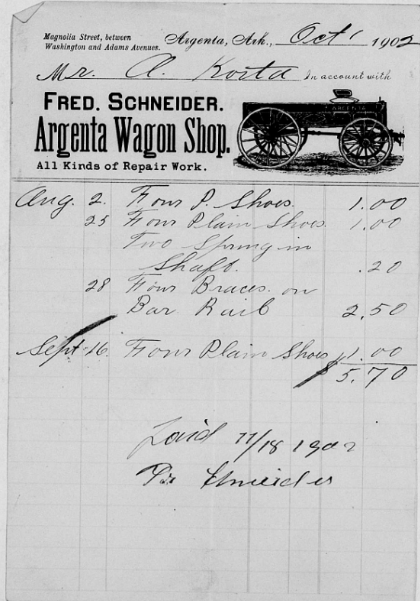 Magnolia Street, between
Washington and Adams Avenues.
Argenta, Ark., Oct 1 1902
Mr. A. Korta In account with
FRED. SCHNEIDER.
Argenta Wagon Shop.
All Kinds of Repair Work.
ARGENTA
Aug. 2. Four P. Shoes. 1.00
25 Four Plain Shoes. 1.00
Two Spring in
Shaft. .20
28 Four Braces on
Bar Rail 2,50
Sept-16. Four Plain Shoes 1.00
$5.70
Paid 11/18 1902
Schneider